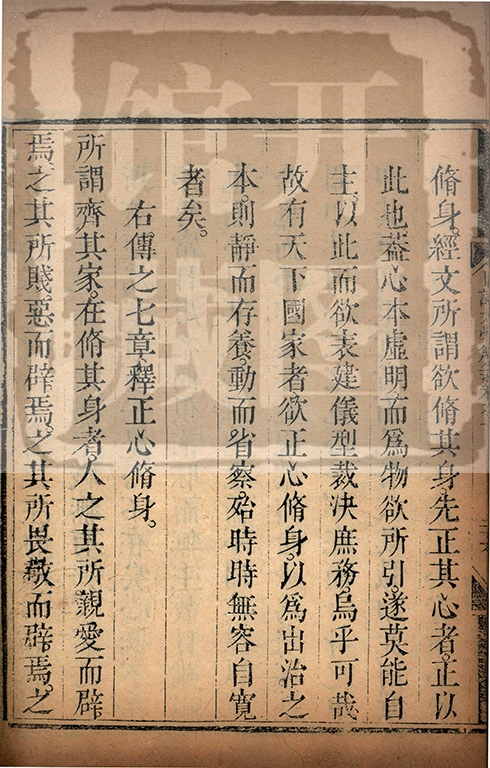 脩身。經文所謂欲脩其身。先正其心者。正以
此也。葢心本虛明。而爲物欲所引。遂莫能自
主。以此而欲表建儀型。裁決庶務。烏乎可哉。
故有天下國家者。欲正心脩身。以爲出治之
本。則靜而存養。動而省察。始時時無容自寬
者矣。
右傳之七章。釋正心脩身。
所謂齊其家。在脩其身者。人之其所親愛而辟
焉。之其所賤惡而辟焉。之其所畏敬而辟焉。之